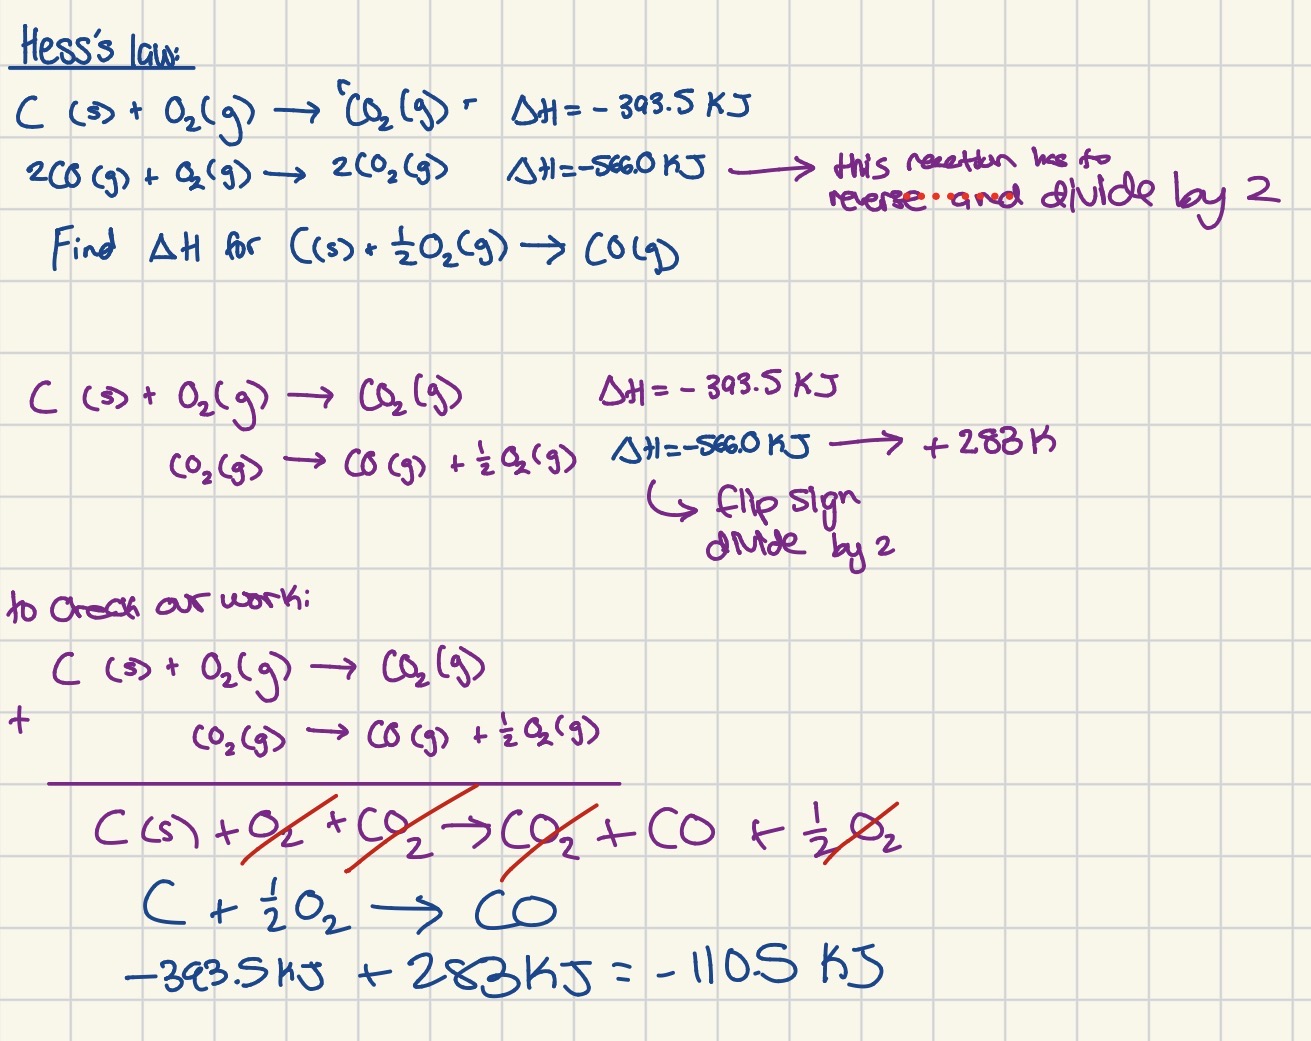 Hess's law:
C (s) + O₂(g) → CO₂(g) ΔH = - 393.5 KJ
2CO(g) + O₂(g) → 2CO₂(g) ΔH=-566.0 KJ → this reaction has to
reverse and divide by 2
Find ΔH for C(s) + 1/2 O₂(g) → CO(g)
C (s) + O₂(g) → CO₂(g) ΔH = - 393.5 KJ
CO₂(g) → CO(g) + 1/2 O₂(g) ΔH=-566.0 KJ → +283 K
flip sign
divide by 2
to check our work:
C (s) + O₂(g) → CO₂(g)
+ CO₂(g) → CO(g) + 1/2 O₂(g)
C(s) + O₂ + CO₂ → CO₂ + CO + 1/2 O₂
C + 1/2 O₂ → CO
-393.5 KJ + 283 KJ = - 110.5 KJ